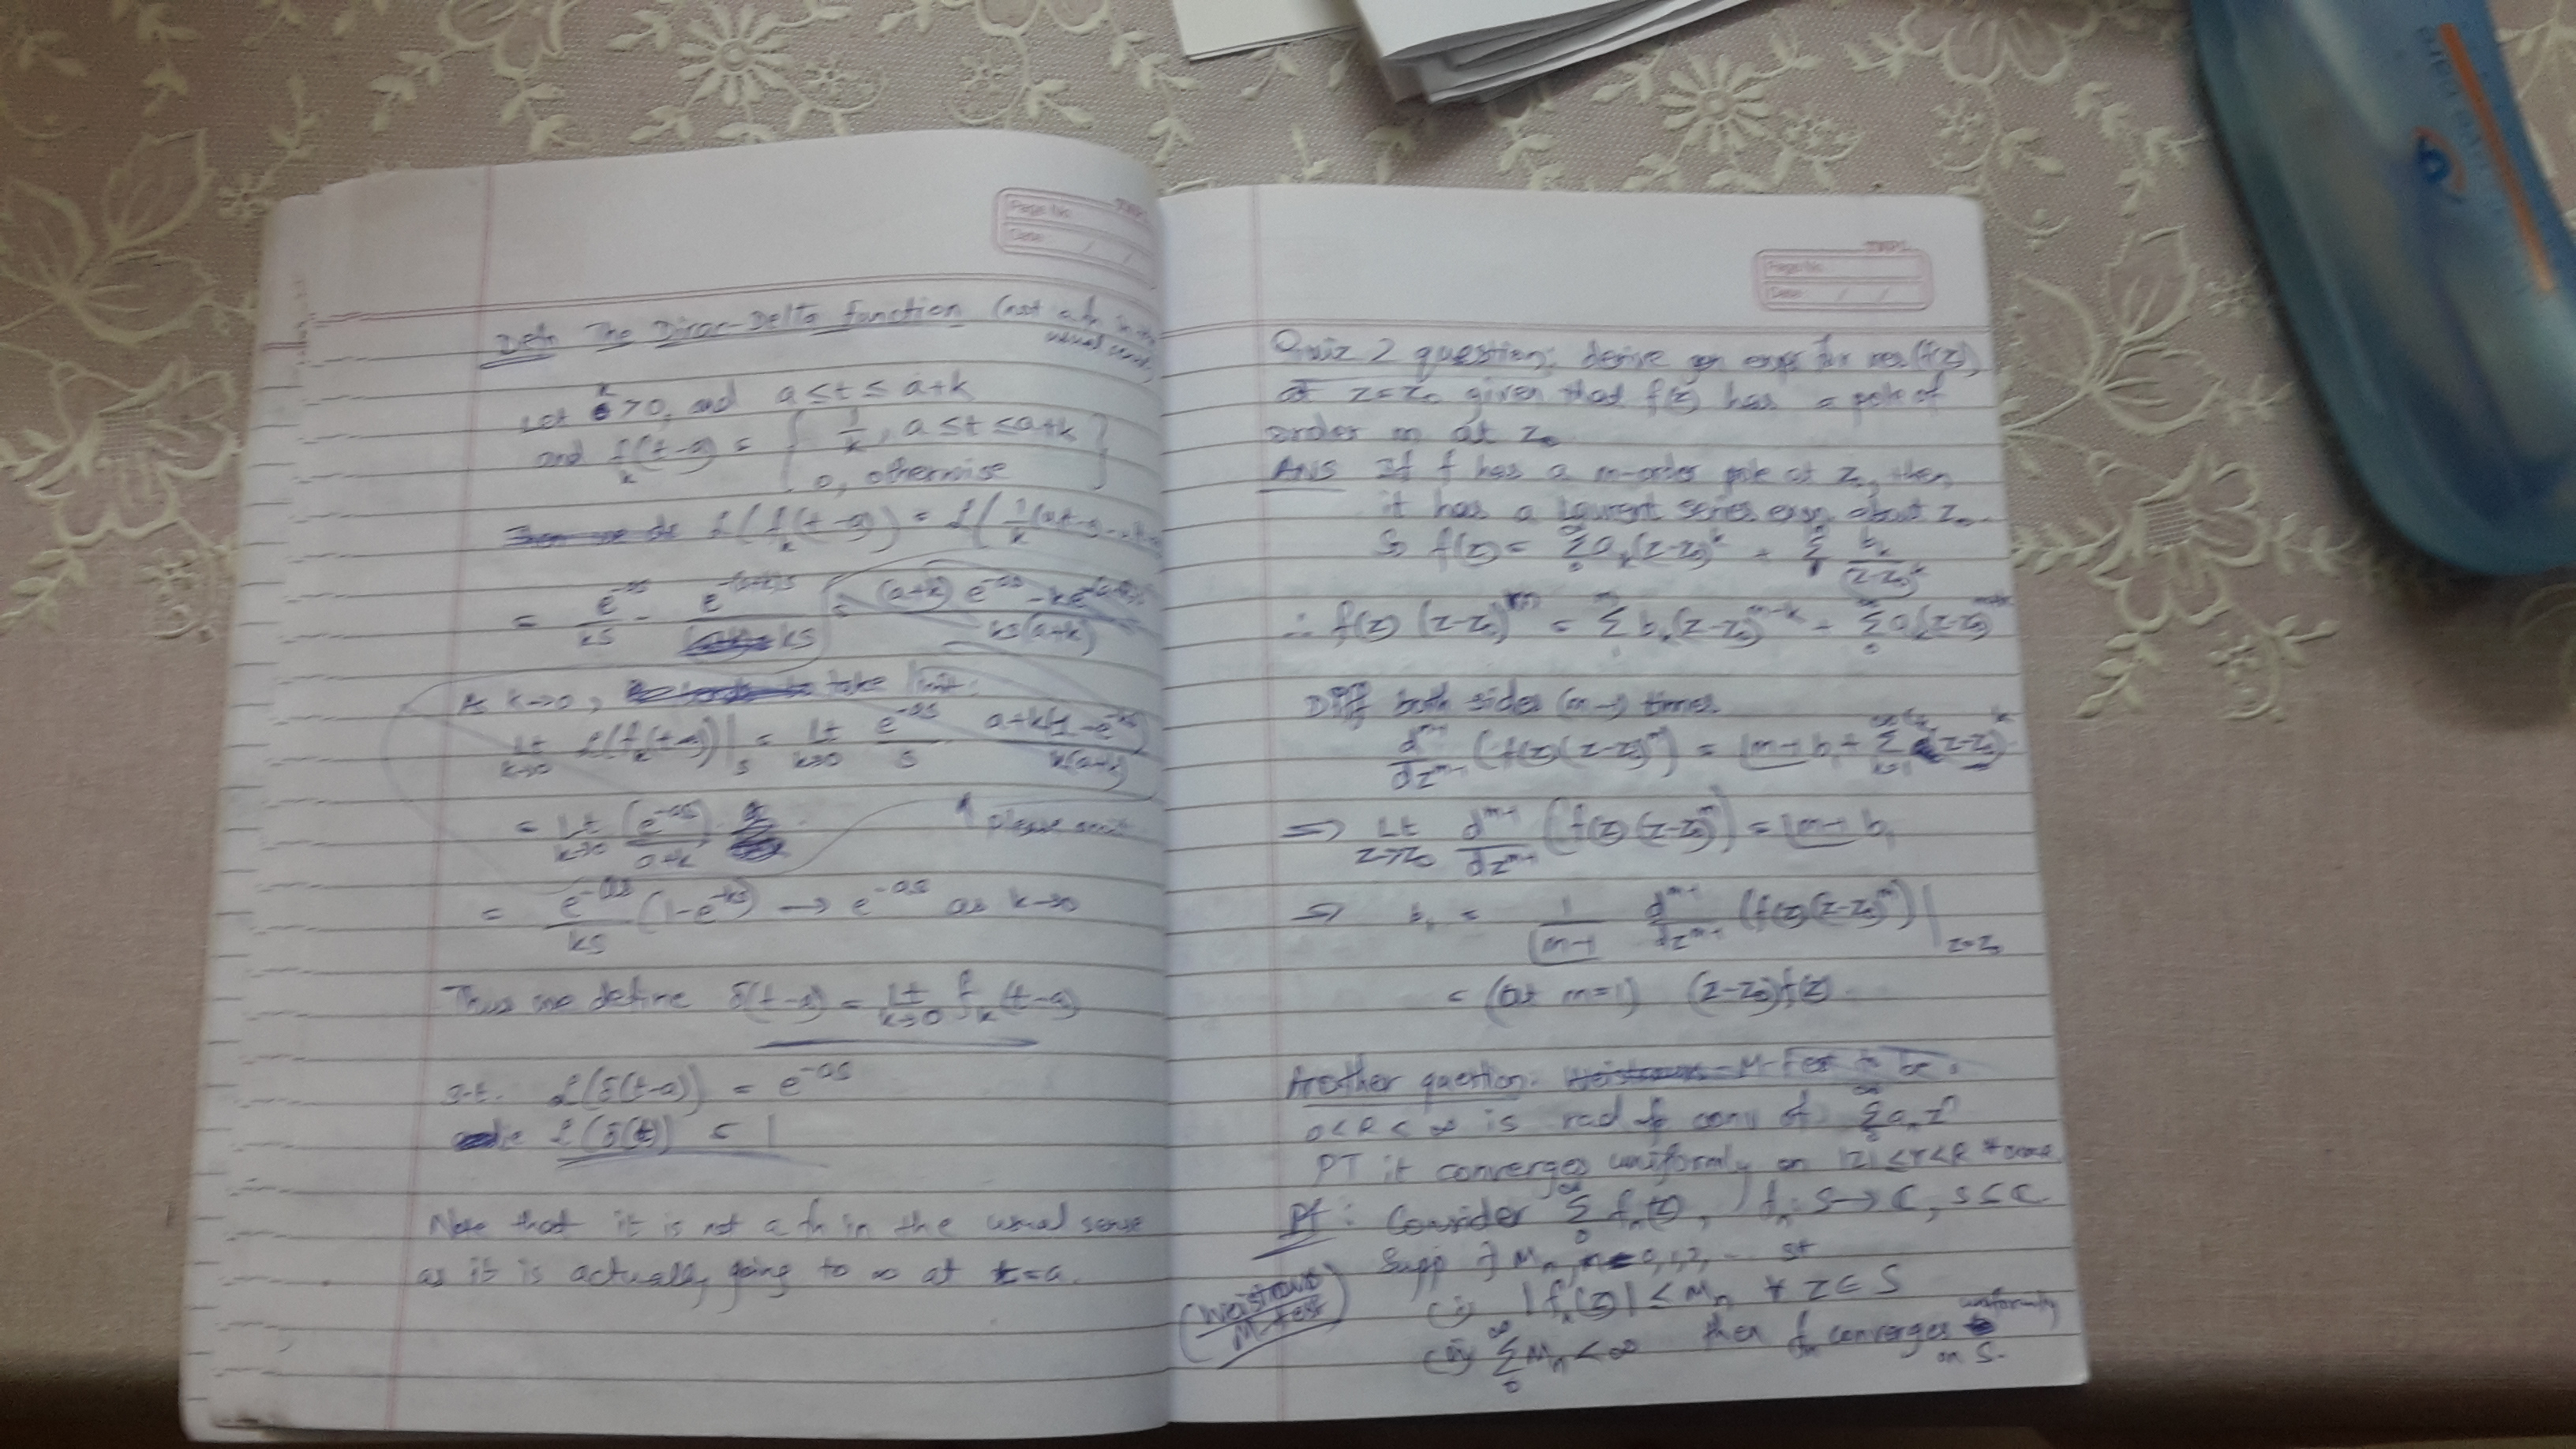 Page No.
Date / /
Defn The Dirac-Delta function (not a fn in the usual sense)
Let k > 0, and a ≤ t ≤ a+k
and f_k(t-a) = { 1/k, a ≤ t ≤ a+k
0, otherwise }
L(f_k(t-a)) = L(1/k (u(t-a)
= e^{-as}/ks - e^{-(a+k)s}/ks = ((a+k) e^{-as} - ke^{-(a+k)s})/ks(a+k)
As k→0, take limit:
Lt k→0 L(f_k(t-a))|_s = Lt k→0 e^{-as}/s a+k(1-e^{-ks})/k(a+k)
= Lt k→0 (e^{-as})/a+k
↑ please omit
= e^{-as}/ks (1-e^{-ks}) → e^{-as} as k→0
Thus we define δ(t-a) = Lt k→0 f_k(t-a)
s.t. L(δ(t-a)) = e^{-as}
L(δ(t)) = 1
Note that it is not a fn in the usual sense
as it is actually going to ∞ at t=a.
Page No.
Date / /
Quiz 2 question; derive an exp for res(f(z))
at z=z₀ given that f(z) has a pole of
order m at z₀
ANS If f has a m-order pole at z₀, then
it has a Laurent series exp about z₀.
So f(z) = ∑_0^∞ a_k(z-z₀)^k + ∑_1 b_k/(z-z₀)^k
∴ f(z) (z-z₀)^m = ∑_1^m b_k(z-z₀)^{m-k} + ∑_0^∞ a_k(z-z₀)^{m+k}
Diff both sides (m-1) times.
d^{m-1}/dz^{m-1} (f(z)(z-z₀)^m) = |m-1 b₁ + ∑_{k=1}^∞ (z-z₀)^k
⇒ Lt z→z₀ d^{m-1}/dz^{m-1} (f(z)(z-z₀)^m) = |m-1 b₁
⇒ b₁ = 1/|m-1 d^{m-1}/dz^{m-1} (f(z)(z-z₀)^m)|_{z=z₀}
= (at m=1) (z-z₀)f(z)
Another question. M-Test to be
0<R<∞ is rad of conv of ∑_0^∞ a_n z^n
PT it converges uniformly on |z| ≤ r < R
Pf: Consider ∑_0^∞ f_n(z), f_n: S→C, S⊆C
Supp ∃ M_n, n=0,1,2,... st
(Weistrauss M-test)
(i) |f_n(z)| ≤ M_n ∀ z∈S
(ii) ∑_0^∞ M_n < ∞ then f_n converges uniformly on S.